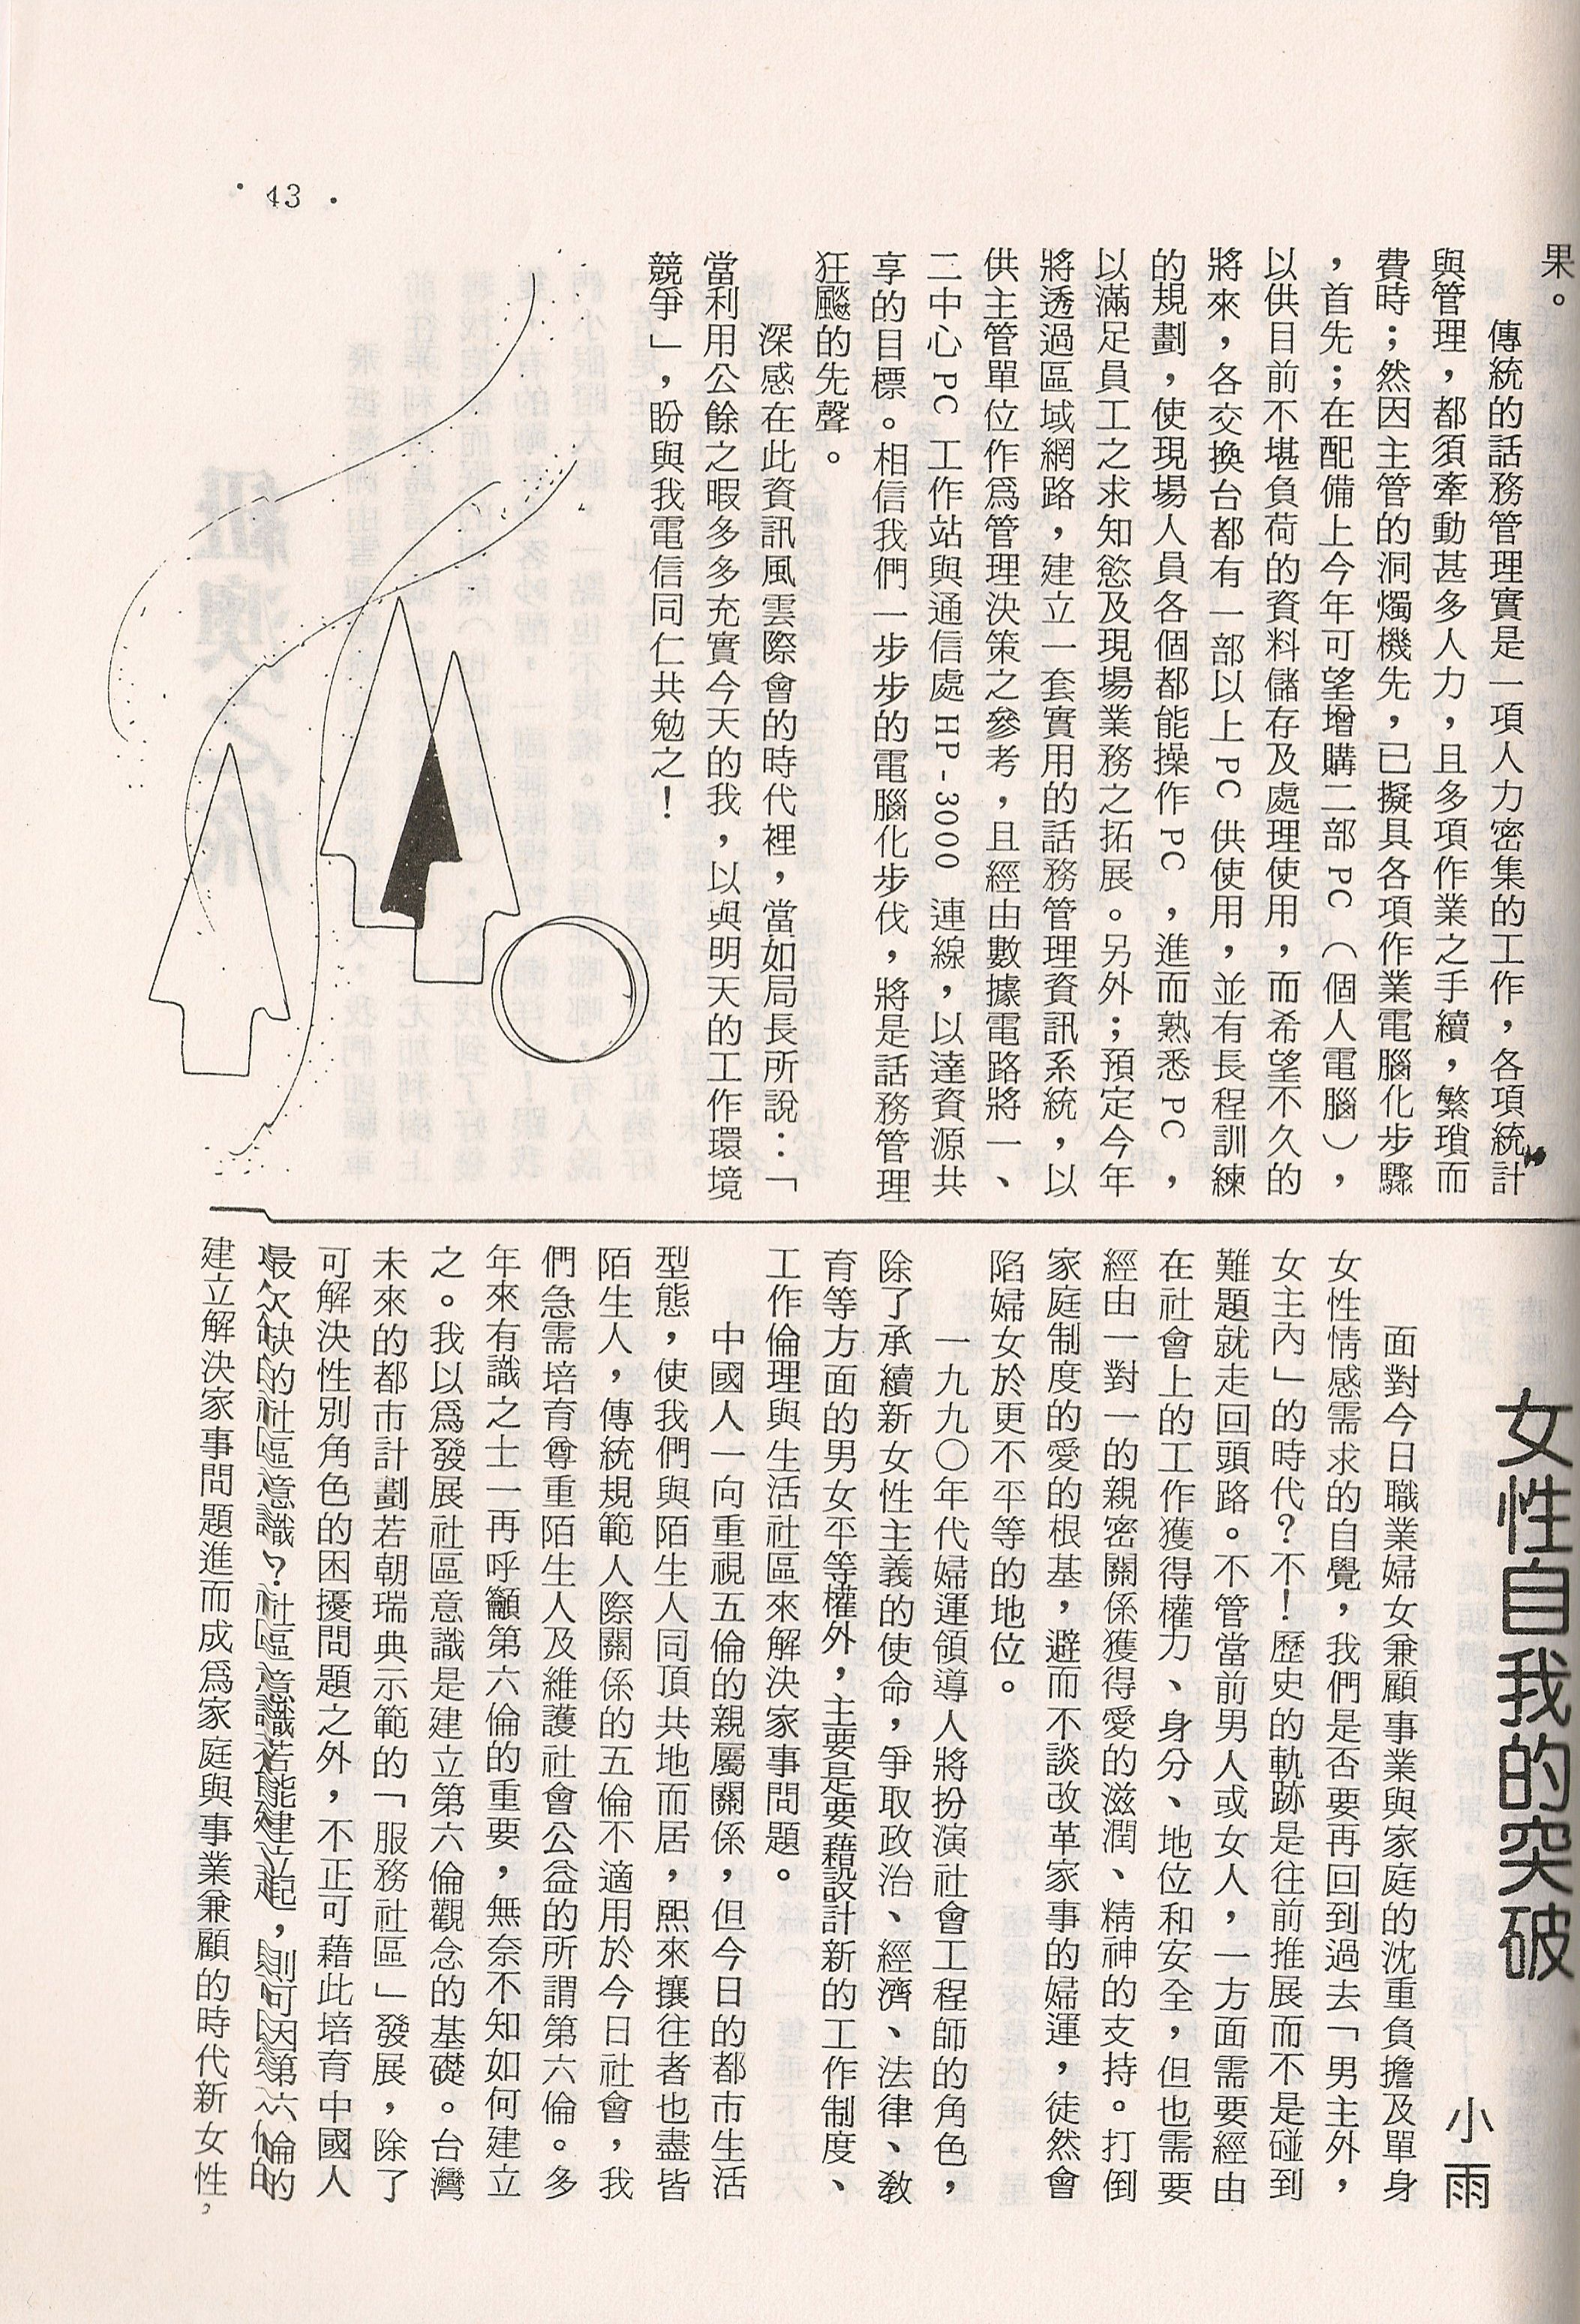 果。
傳統的話務管理實是一項人力密集的工作，各項統計
與管理，都須牽動甚多人力，且多項作業之手續，繁瑣而
費時；然因主管的洞燭機先，已擬具各項作業電腦化步驟
，首先；在配備上今年可望增購二部PC（個人電腦），
以供目前不堪負荷的資料儲存及處理使用，而希望不久的
將來，各交換台都有一部以上PC供使用，並有長程訓練
的規劃，使現場人員各個都能操作PC，進而熟悉PC，
以滿足員工之求知慾及現場業務之拓展。另外；預定今年
將透過區域網路，建立一套實用的話務管理資訊系統，以
供主管單位作爲管理決策之參考，且經由數據電路將一、
二中心PC工作站與通信處HP-3000連線，以達資源共
享的目標。相信我們一步步的電腦化步伐，將是話務管理
狂飈的先聲。
深感在此資訊風雲際會的時代裡，當如局長所說：「
當利用公餘之暇多多充實今天的我，以與明天的工作環境
競爭」，盼與我電信同仁共勉之！
女性自我的突破
小雨
面對今日職業婦女兼顧事業與家庭的沈重負擔及單身
女性情感需求的自覺，我們是否要再回到過去「男主外，
女主內」的時代？不！歷史的軌跡是往前推展而不是碰到
難題就走回頭路。不管當前男人或女人，一方面需要經由
在社會上的工作獲得權力、身分、地位和安全，但也需要
經由一對一的親密關係獲得愛的滋潤、精神的支持。打倒
家庭制度的愛的根基，避而不談改革家事的婦運，徒然會
陷婦女於更不平等的地位。
一九九〇年代婦運領導人將扮演社會工程師的角色，
除了承續新女性主義的使命，爭取政治、經濟、法律、教
育等方面的男女平等權外，主要是要藉設計新的工作制度、
工作倫理與生活社區來解決家事問題。
中國人一向重視五倫的親屬關係，但今日的都市生活
型態，使我們與陌生人同頂共地而居，熙來攘往者也盡皆
陌生人，傳統規範人際關係的五倫不適用於今日社會，我
們急需培育尊重陌生人及維護社會公益的所謂第六倫。多
年來有識之士一再呼籲第六倫的重要，無奈不知如何建立
之。我以爲發展社區意識是建立第六倫觀念的基礎。台灣
未來的都市計劃若朝瑞典示範的「服務社區」發展，除了
可解決性別角色的困擾問題之外，不正可藉此培育中國人
最欠缺的社區意識？社區意識若能建立起，則可因第六倫的
建立解決家事問題進而成爲家庭與事業兼顧的時代新女性，
43